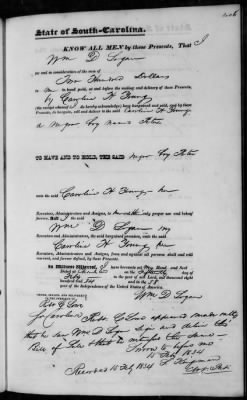 State of South-Carolina.
KNOW ALL MEN by these Presents, That I
Wm D Logan
for and in consideration of the sum of
Two Hundred Dollars
to me in hand paid, at and before the sealing and delivery of these Presents,
by Caroline H
(the receipt whereof I do hereby acknowledge) have bargained and sold, and by these
Presents, do bargain, sell and deliver to the said Caroline H
a Negro boy named Peter
TO HAVE AND TO HOLD, THE SAID Negro boy Peter
unto the said Caroline H her
Executors, Administrators and Assigns, to her and their only proper use and behoof
forever. And I the said
Wm D Logan my
Executors and Administrators, the said bargained premises, unto the said
Caroline H her
Executors, Administrators and Assigns, from and against all persons shall and will
warrant, and forever defend, by these Presents.
In Witness Whereof, I have hereunto set my Hand and Seal
Dated at on the
Feby in the year of our Lord one thousand eight
hundred and thirty four and in the 58th
year of the Independence of the United States of America.
SIGNED, SEALED, AND DELIVERED
IN THE PRESENCE OF
Wm D Logan
So Carolina appeared made oath
that he saw Wm D Logan sign and deliver this
Bill of Sale & that he witnessed the same
Sworn to before me
15 Feby 1834
Recorded 15 Feby 1834